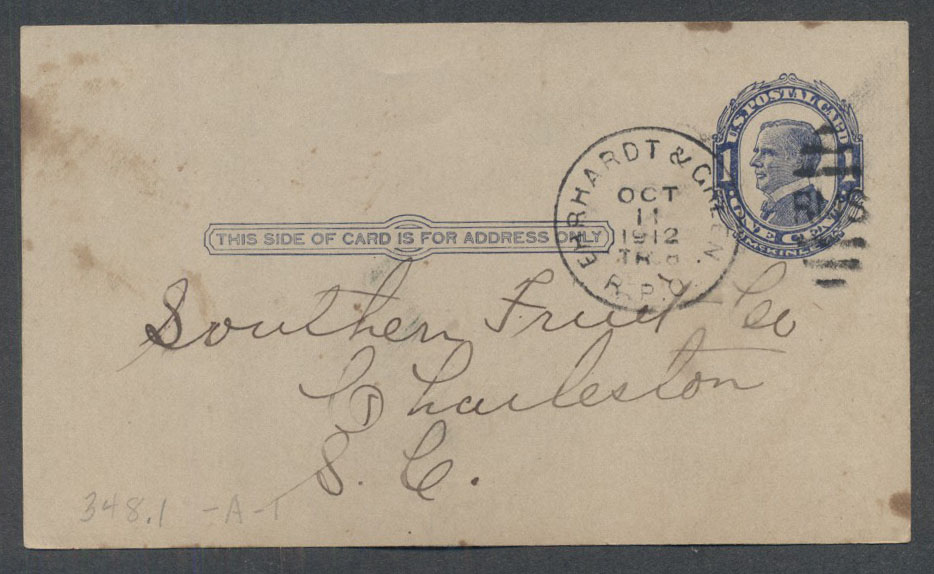 U.S. POSTAL CARD
1 1
ONE CENT
McKINLEY
EHRHARDT & GREEN
OCT
11
1912
TR 8
R.P.O.
RMS
THIS SIDE OF CARD IS FOR ADDRESS ONLY
Southern Fruit Co
Charleston
S. C.
348.1 -A-T